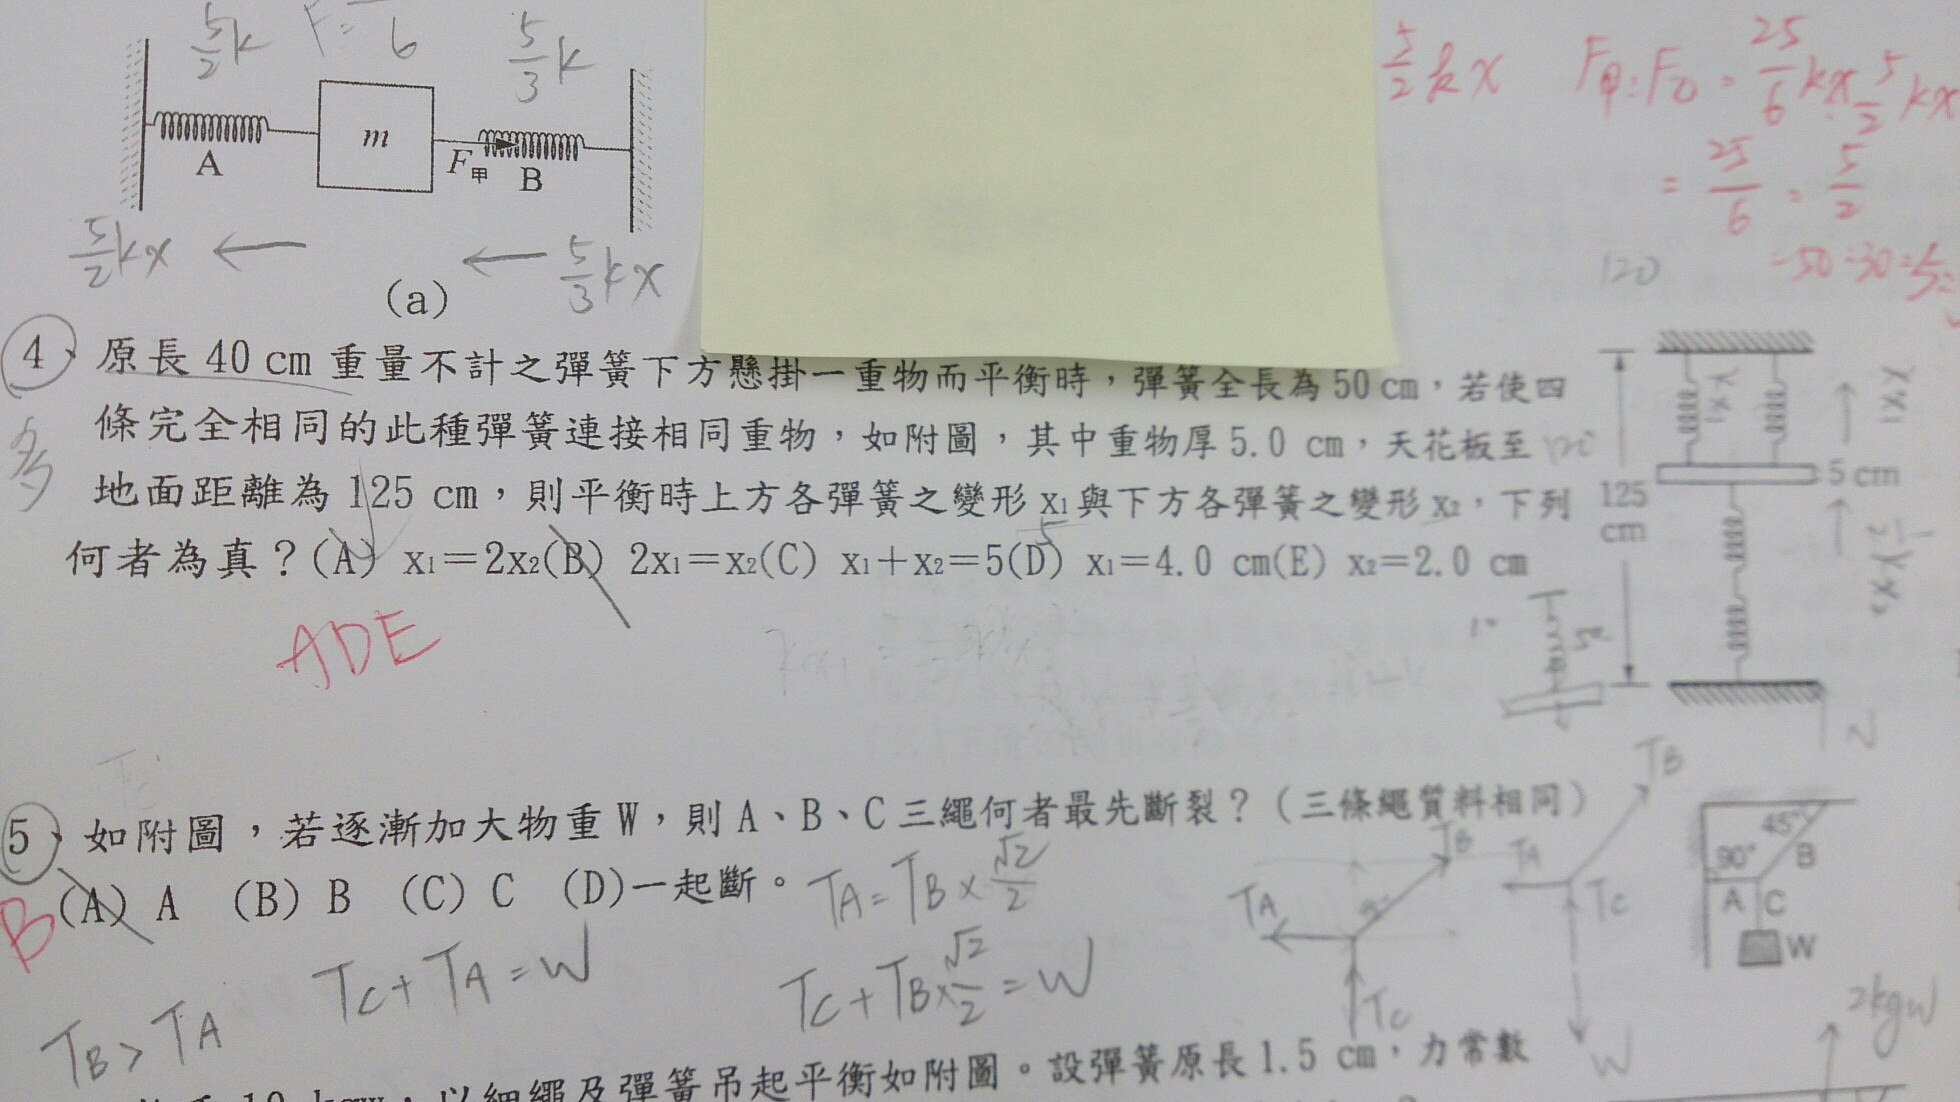 5/2 k
F= 6
5/3 k
m
A
F甲
B
5/2 kx ←
← 5/3 kx
(a)
5/2 kx
F甲:F乙 = 25/6 kx : 5/2 kx
= 25/6 : 5/2
120
4、原長 40 cm 重量不計之彈簧下方懸掛一重物而平衡時，彈簧全長為 50 cm，若使四
條完全相同的此種彈簧連接相同重物，如附圖，其中重物厚 5.0 cm，天花板至
地面距離為 125 cm，則平衡時上方各彈簧之變形 x₁ 與下方各彈簧之變形 x₂，下列
何者為真？(A) x₁＝2x₂(B) 2x₁＝x₂(C) x₁＋x₂＝5(D) x₁＝4.0 cm(E) x₂＝2.0 cm
多
ADE
125
cm
5 cm
5、如附圖，若逐漸加大物重 W，則 A、B、C 三繩何者最先斷裂？（三條繩質料相同）
(A) A (B) B (C) C (D)一起斷。
B
TA = TB × √2/2
TC + TA = W
TC + TB × √2/2 = W
TB > TA
TA
TB
TC
TB
TA
TC
W
N
45°
90°
B
A
C
W
2kgw
10 kgw，以細繩及彈簧吊起平衡如附圖。設彈簧原長 1.5 cm，力常數